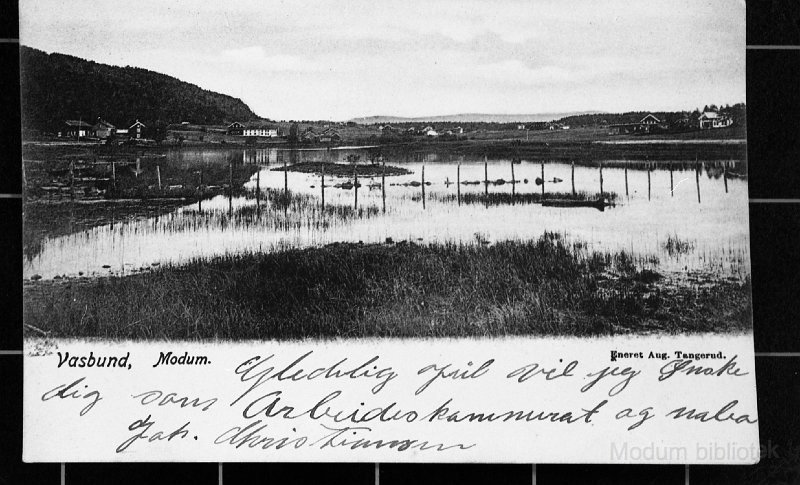 Vasbund, Modum.
Eneret Aug. Tangerud.
Glædelig Jul vil jeg Ønske
dig som Arbeideskammurat og nabo
Joh. Christiansen
Modum bibliotek